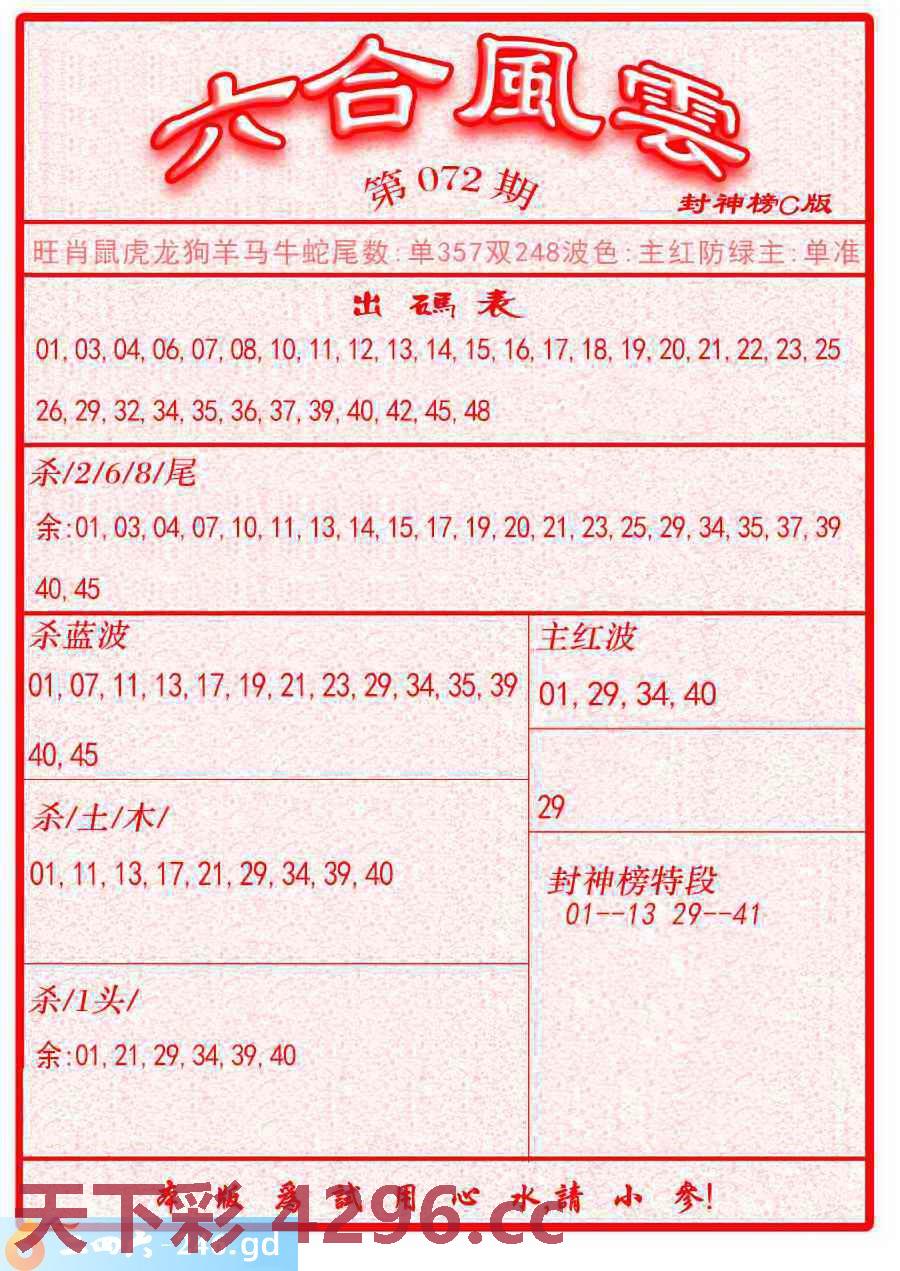 六合風雲
第072期
封神榜C版
旺肖鼠虎龙狗羊马牛蛇尾数:单357双248波色:主红防绿主:单准
出碼表
01,03,04,06,07,08,10,11,12,13,14,15,16,17,18,19,20,21,22,23,25
26,29,32,34,35,36,37,39,40,42,45,48
杀/2/6/8/尾
余:01,03,04,07,10,11,13,14,15,17,19,20,21,23,25,29,34,35,37,39
40,45
杀蓝波
01,07,11,13,17,19,21,23,29,34,35,39
40,45
主红波
01,29,34,40
29
杀/土/木/
01,11,13,17,21,29,34,39,40
封神榜特段
01--13 29--41
杀/1头/
余:01,21,29,34,39,40
本版為試用心水,請小參!
天下彩 4296.cc